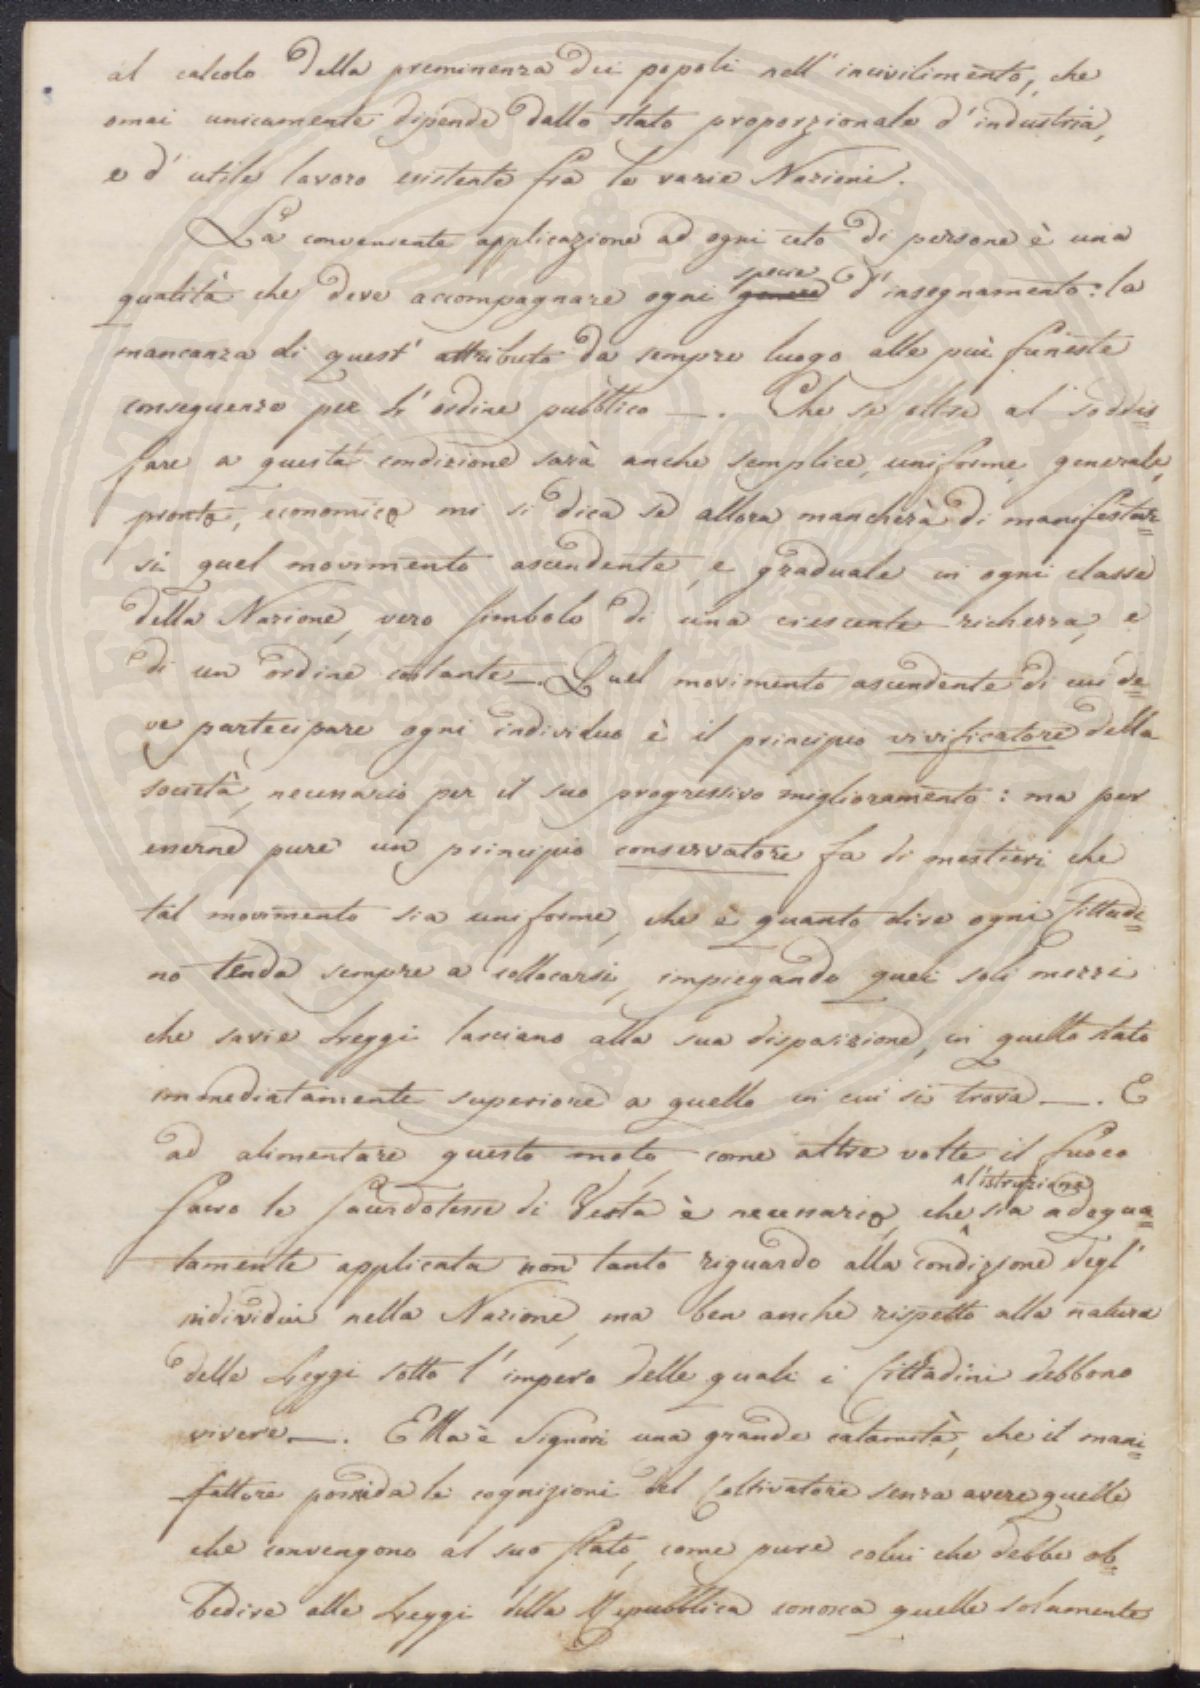 al calcolo della preminenza dei popoli nell' incivilimento, che
omai unicamente dipende dallo stato proporzionale d' industria,
e d' utile lavoro esistente fra le varie Nazioni.
La conveniente applicazione ad ogni ceto di persone è una
qualità che deve accompagnare ogni genere specie d' insegnamento: la
mancanza di quest' attributo da sempre luogo alle più funeste
conseguenze per l' ordine pubblico —. Che se oltre al soddis=
fare a questa condizione sarà anche semplice, uniforme, generale,
pronto, economico mi si dica se allora mancherà di manifestar=
si quel movimento ascendente, e graduale in ogni classe
della Nazione, vero simbolo di una crescente richezza, e
di un ordine costante —. Quel movimento ascendente di cui de=
ve partecipare ogni individuo è il principio vivificatore della
società, necessario per il suo progressivo miglioramento: ma per
esserne pure un principio conservatore fa di mestieri che
tal movimento sia uniforme, che è quanto dire ogni Cittadi=
no tenda sempre a collocarsi, impiegando quei soli mezzi
che savie Leggi lasciano alla sua disposizione, in quello stato
immediatamente superiore a quello in cui si trova —. E
ad alimentare questo moto, come altre volte il fuoco
sacro le sacerdotesse di Vesta è necessario, che l'istruzione sia adegua=
tamente applicata non tanto riguardo alla condizione degl'
individui nella Nazione, ma ben anche rispetto alla natura
delle Leggi sotto l' impero delle quali i Cittadini debbono
vivere —. Ella è Signori una grande calamità, che il mani=
fattore possieda le cognizioni del Coltivatore senza avere quelle
che convengono al suo stato, come pure colui che debbe ob=
bedire alle Leggi della Repubblica conosca quelle solamente